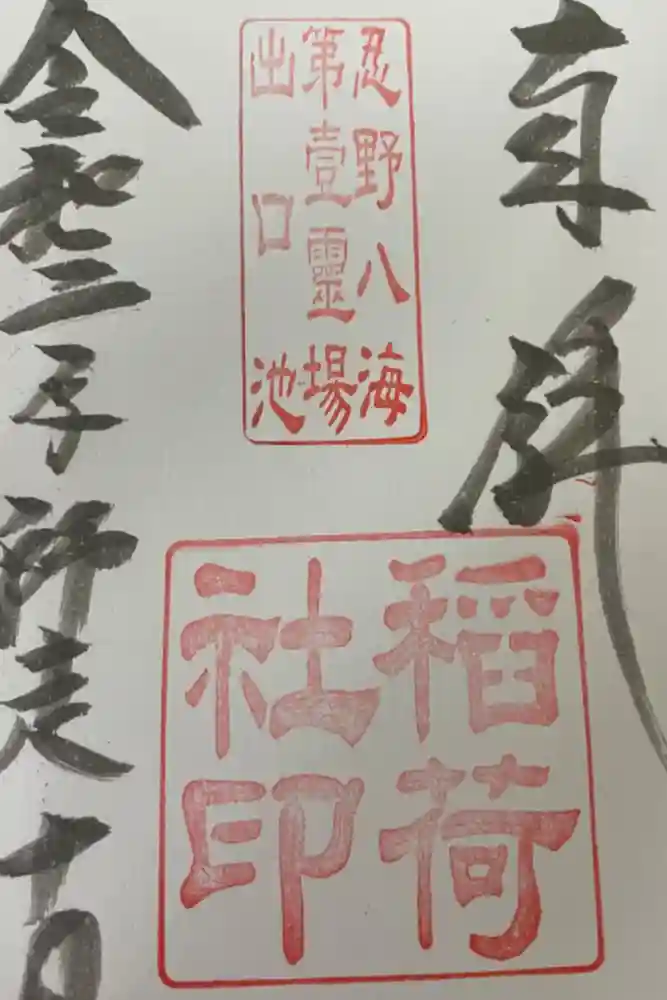 奉拝
忍野八海
第壹靈場
出口池
稻荷
社印
令和二年師走十日